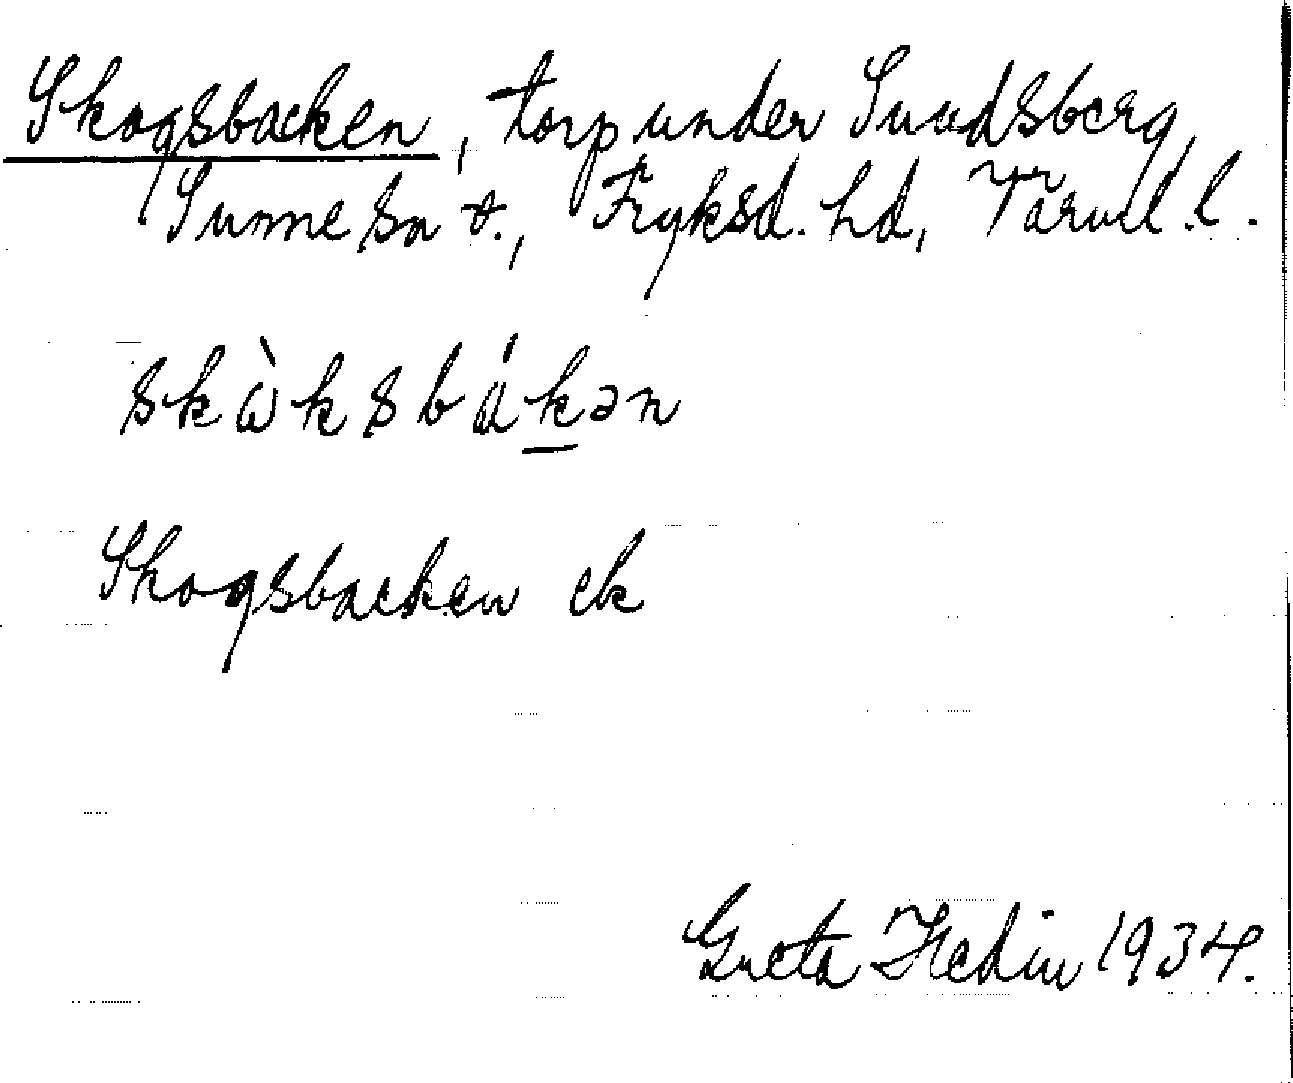 Skogsbacken, torp under Sundsberg,
Sunne sn +., Fryksd. hd, Värml. l.
skὼksbákən
Skogsbacken ek
Greta Hedin 1934.